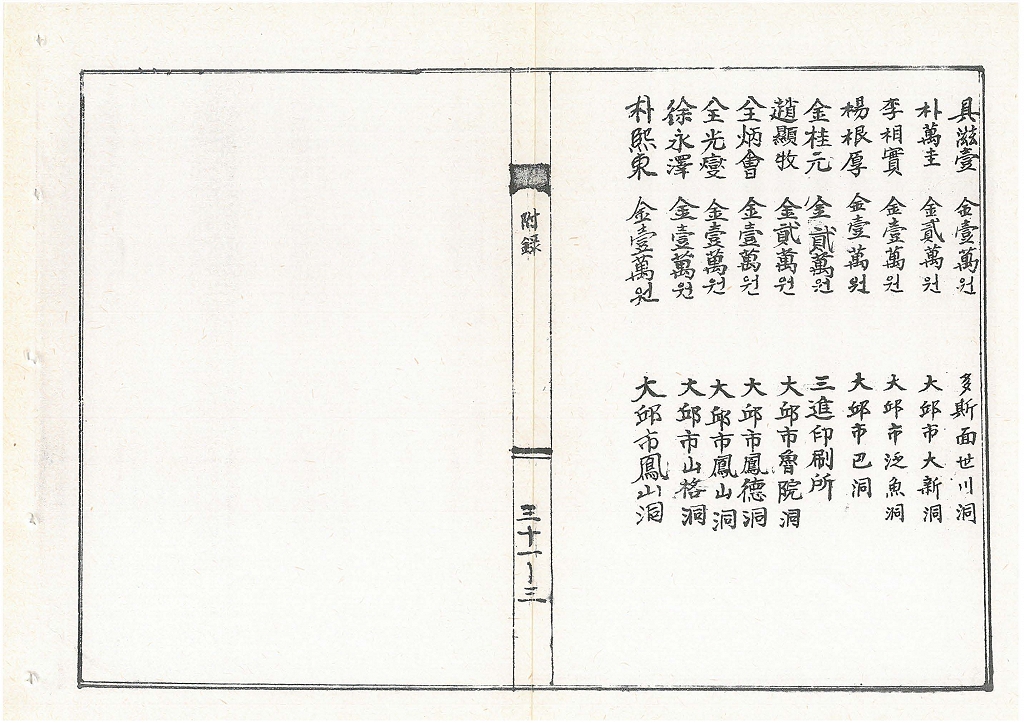 具滋壹 金壹萬원 多斯面世川洞
朴萬圭 金貳萬원 大邱市大新洞
李相實 金壹萬원 大邱市泛魚洞
楊根厚 金壹萬원 大邱市巴洞
金桂元 金貳萬원 三進印刷所
趙顯牧 金貳萬원 大邱市魯院洞
全炳會 金壹萬원 大邱市鳳德洞
全光燮 金壹萬원 大邱市鳳山洞
徐永澤 金壹萬원 大邱市山格洞
朴熙東 金壹萬원 大邱市鳳山洞
附録
三十一-三